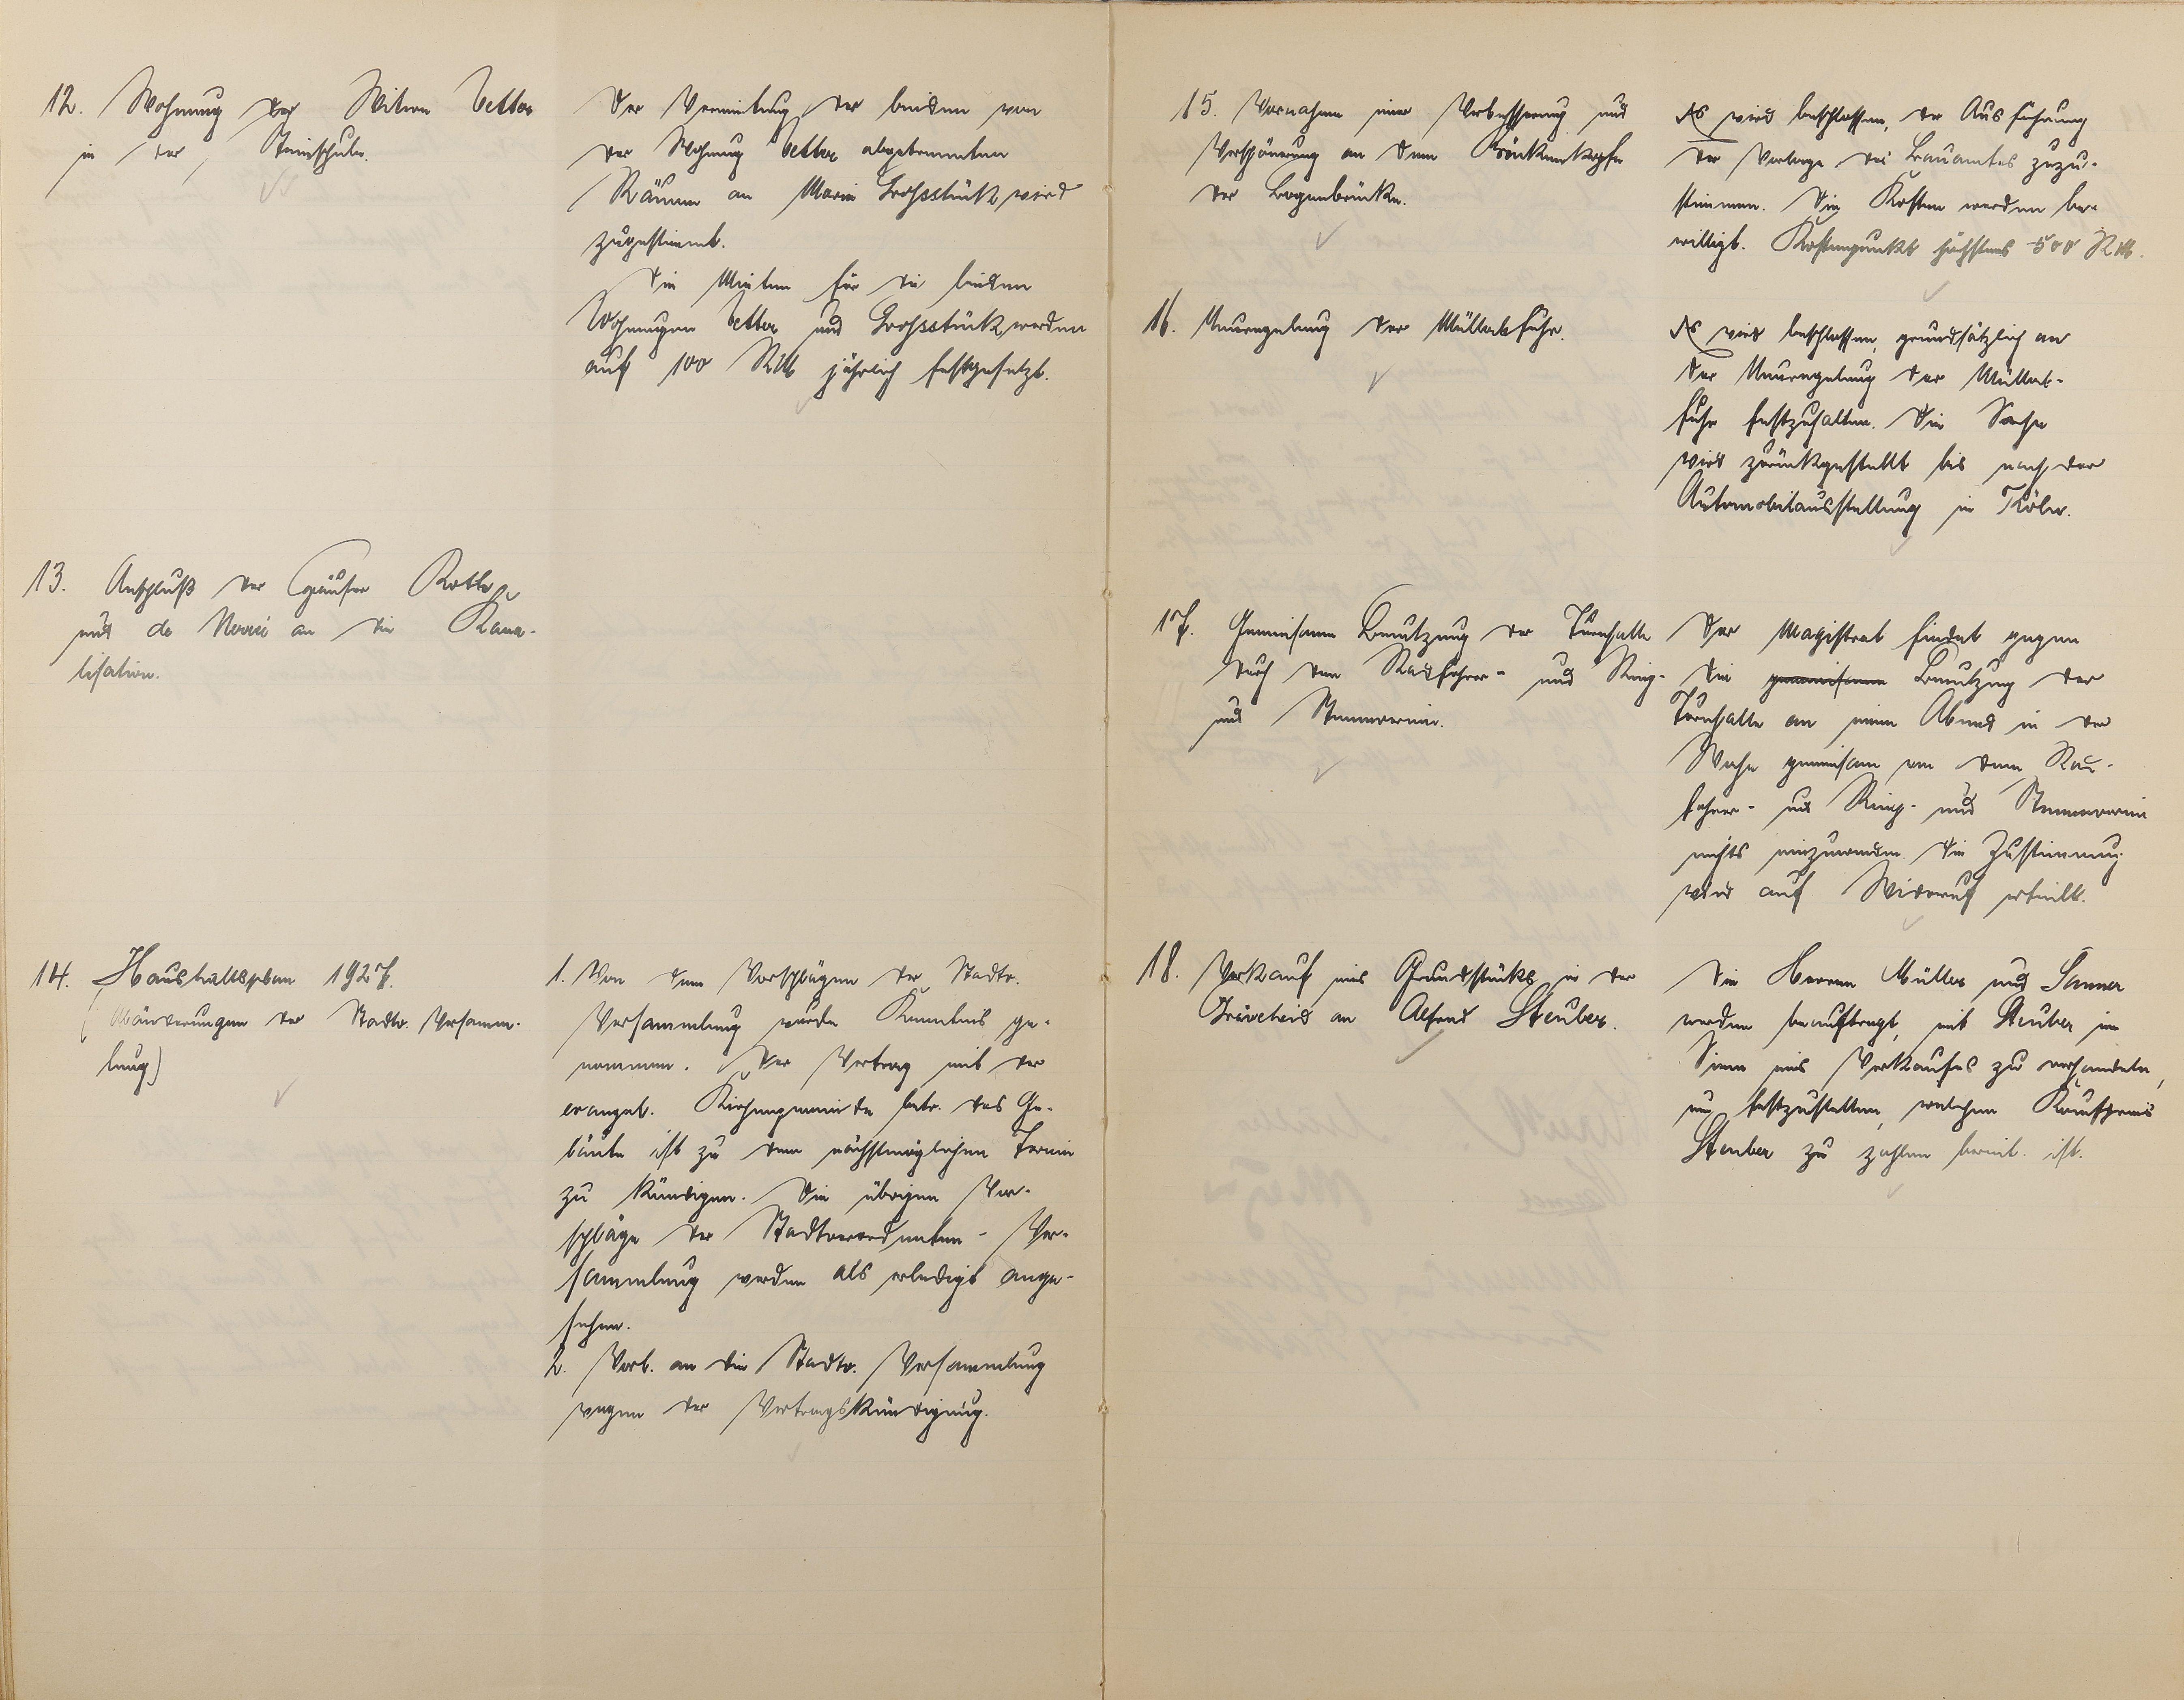 12. Wohnung der Witwe Vetter
in der Steinschule.
Der Vermietung der beiden von
der Wohnung Vetter abgetrennten
Räume an Marie Großstück wird
zugestimmt.
Die Mieten für die beiden
Wohnungen Vetter und Großstück werden
auf 100 RM jährlich festgesetzt.
13. Anschluß der Häuser Rotth
und de Noui an die Kana-
lisation.
14. Haushaltsplan 1927.
(Abänderungen der Stadtv. Versamm-
lung)
1. Von den Vorschlägen der Stadtv.
Versammlung wurde Kenntnis ge-
nommen. Der Vertrag mit der
evangel. Kirchengemeinde betr. das Ge-
läute ist zu dem nächstmöglichen Termin
zu kündigen. Die übrigen Vor-
schläge der Stadtverordneten-Ver-
sammlung werden als erledigt ange-
sehen.
2. Vorl. an die Stadtv. Versammlung
wegen der Vertragskündigung.
15. Vornahme einer Verbesserung und
Verschönerung an dem Brückenkopfe
der Bogenbrücke.
Es wird beschlossen, der Ausführung
der Vorlage des Bauamtes zuzu-
stimmen. Die Kosten werden be-
willigt. Kostenpunkt höchstens 500 RM.
16. Neuregelung der Müllabfuhr.
Es wird beschlossen, grundsätzlich an
der Neuregelung der Müllab-
fuhr festzuhalten. Die Sache
wird zurückgestellt bis nach der
Automobilausstellung in Köln.
17. Gemeinsame Benutzung der Turnhalle
durch den Radfahrer- und Ring-
und Stemmverein.
Der Magistrat findet gegen
die gemeinsame Benutzung der
Turnhalle an einem Abend in der
Woche gemeinsam von dem Rad-
fahrer- und Ring- und Stemmverein
nichts einzuwenden. Die Zustimmung
wird auf Widerruf erteilt.
18. Verkauf eines Grundstücks in der
an Alfred Steuber.
Die Herren Müller und Sänner
werden beauftragt, mit Steuber im
Sinne eines Verkaufes zu verhandeln,
um festzustellen, welchen Kaufpreis
Steuber zu zahlen bereit ist.